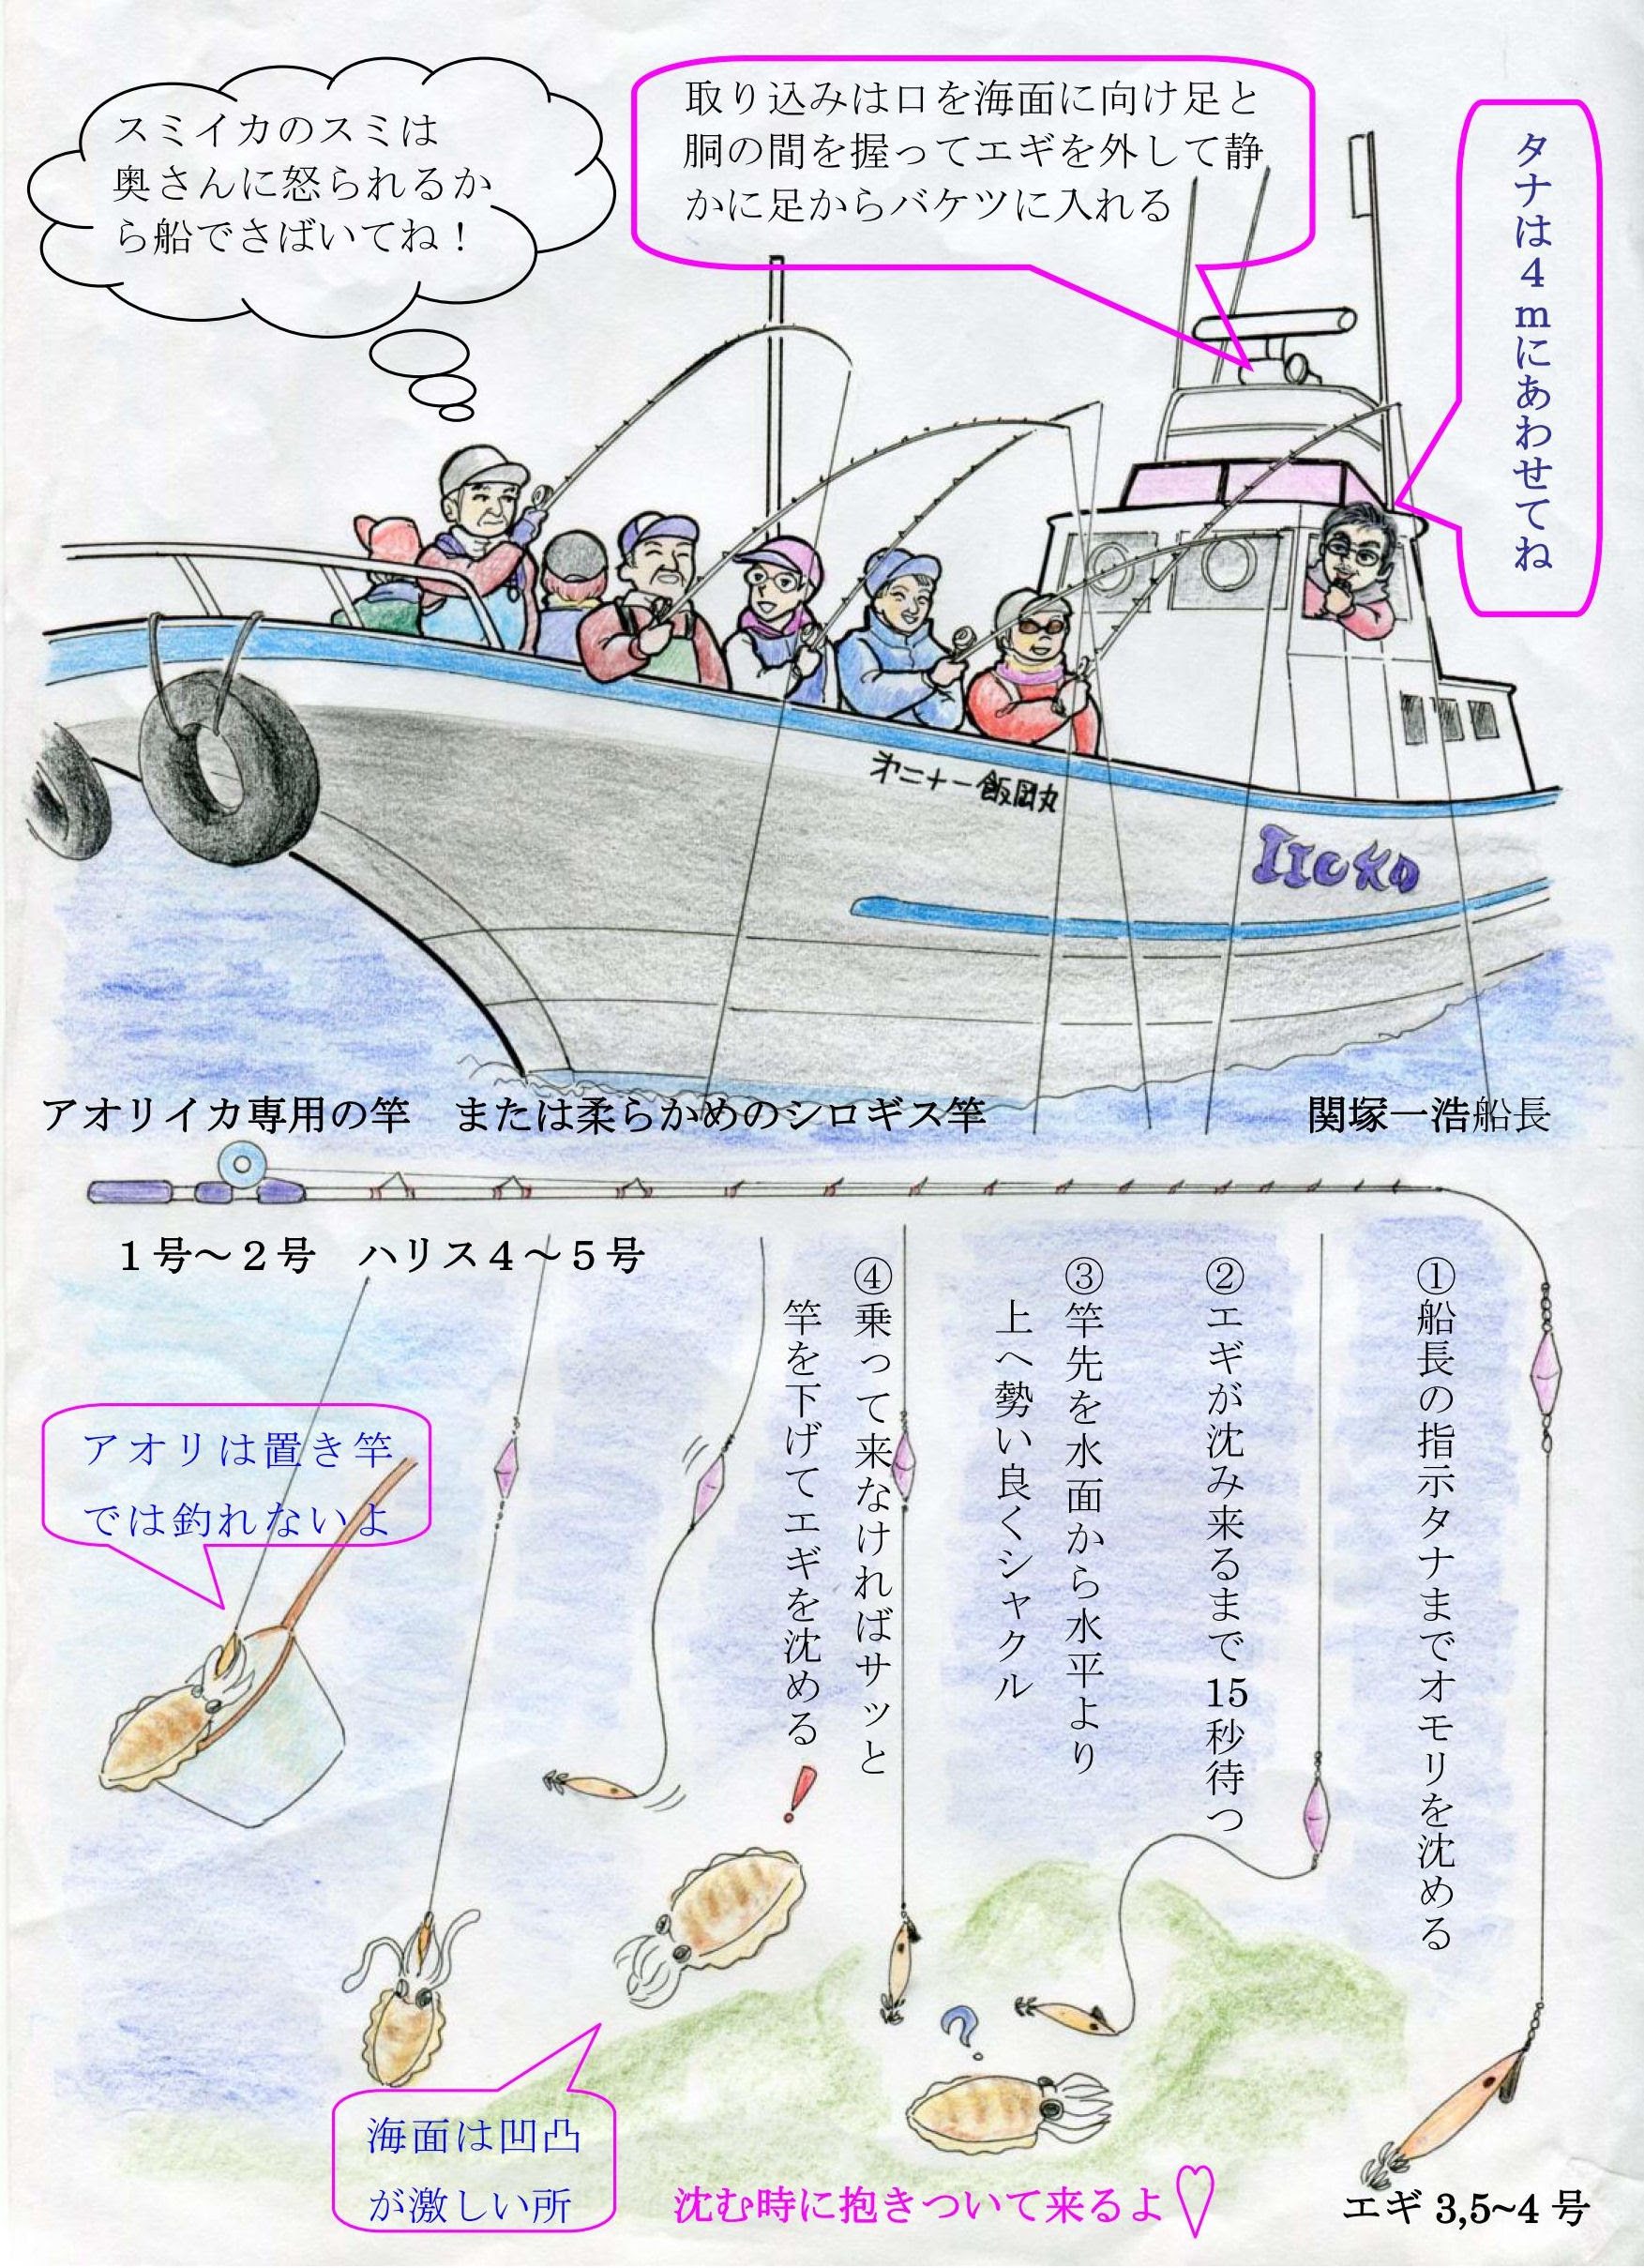 スミイカのスミは
奥さんに怒られるか
ら船でさばいてね！
取り込みは口を海面に向け足と
胴の間を握ってエギを外して静
かに足からバケツに入れる
タナは４ｍにあわせてね
第二十一飯岡丸
IIOKO
アオリイカ専用の竿　または柔らかめのシロギス竿
関塚一浩船長
１号～２号　ハリス４～５号
①船長の指示タナまでオモリを沈める
②エギが沈み来るまで 15 秒待つ
③竿先を水面から水平より
上へ勢い良くシャクル
④乗って来なければサッと
竿を下げてエギを沈める
!
アオリは置き竿
では釣れないよ
?
海面は凹凸
が激しい所
沈む時に抱きついて来るよ♡
エギ 3,5~4 号